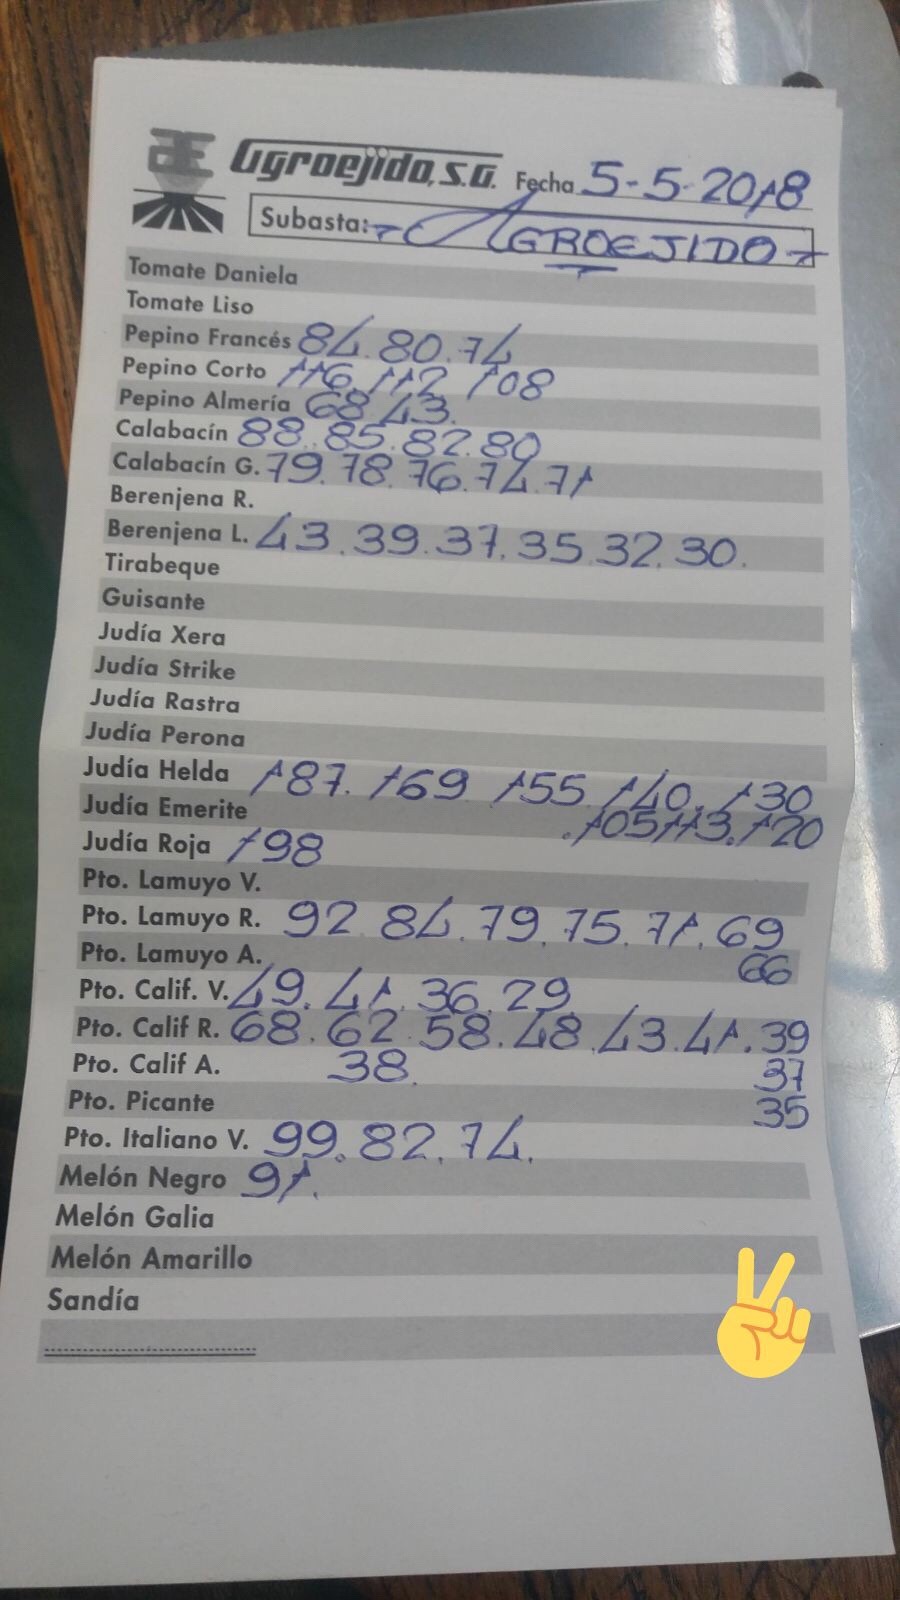 Agroejido, S.A. Fecha 5-5-2018
Subasta: AGROEJIDO
Tomate Daniela
Tomate Liso
Pepino Francés 84. 80. 74
Pepino Corto 116. 112. 108
Pepino Almería 68. 43.
Calabacín 88. 85. 82. 80
Calabacín G. 79. 78. 76. 74. 71
Berenjena R.
Berenjena L. 43. 39. 37. 35. 32. 30.
Tirabeque
Guisante
Judía Xera
Judía Strike
Judía Rastra
Judía Perona
Judía Helda 187. 169 155. 140. 130
Judía Emerite .105 113. 120
Judía Roja 198
Pto. Lamuyo V.
Pto. Lamuyo R. 92. 84. 79. 75. 71. 69
Pto. Lamuyo A. 66
Pto. Calif. V. 49. 41. 36. 29
Pto. Calif R. 68. 62. 58. 48. 43. 41. 39
Pto. Calif A. 38. 37
Pto. Picante 35
Pto. Italiano V. 99. 82. 74.
Melón Negro 91.
Melón Galia
Melón Amarillo
Sandía